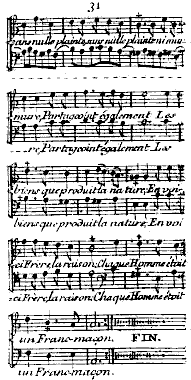 31
sans nulle plainte, sans nulle plainte ni mur-
mure, Partageoint également Les
re, Partageoint également Les
biens que produit la nature, En voi-
biens que produit la nature, En voi
ci Frère, la raison; Chaque Homme étoit
ci Frère, la raison; Chaque Homme étoit
un Franc-maçon. FIN.
un Franc-maçon.